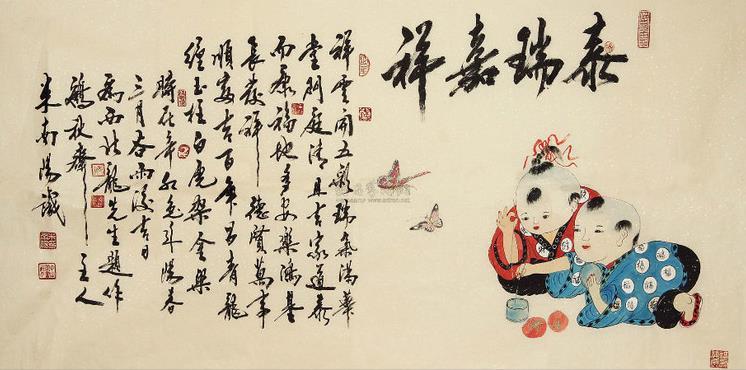 泰瑞嘉祥
祥雲開五彩瑞氣滿華
堂門庭清且吉家道泰
而康福地多安樂鴻基
長發祥德賢萬事
順吉百年昌青龍
玉柱白虎架金梁
時在辛卯兔年陽春
三月谷雨後吉日
龍先生題作
秋齋主人
南陽識